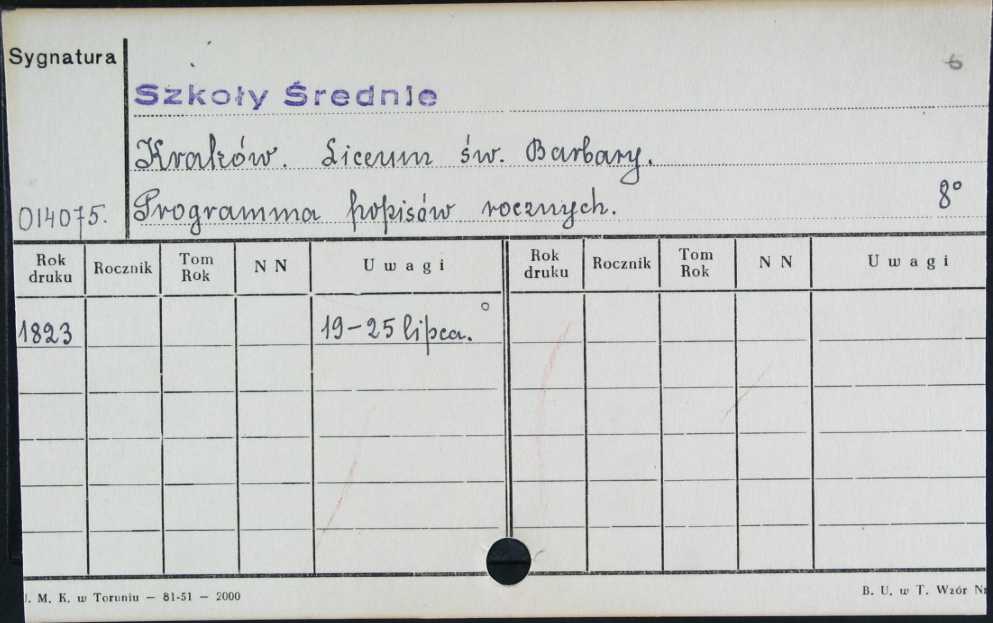 Sygnatura
6
Szkoły Średnie
Kraków. Liceum św. Barbary.
014075.
Programma popisów rocznych.
8°
Rok druku Rocznik Tom Rok N N Uwagi Rok druku Rocznik Tom Rok N N Uwagi
1823 19-25 lipca.
. M. K. w Toruniu — 81-51 — 2000
B. U. w T. Wzór Nr